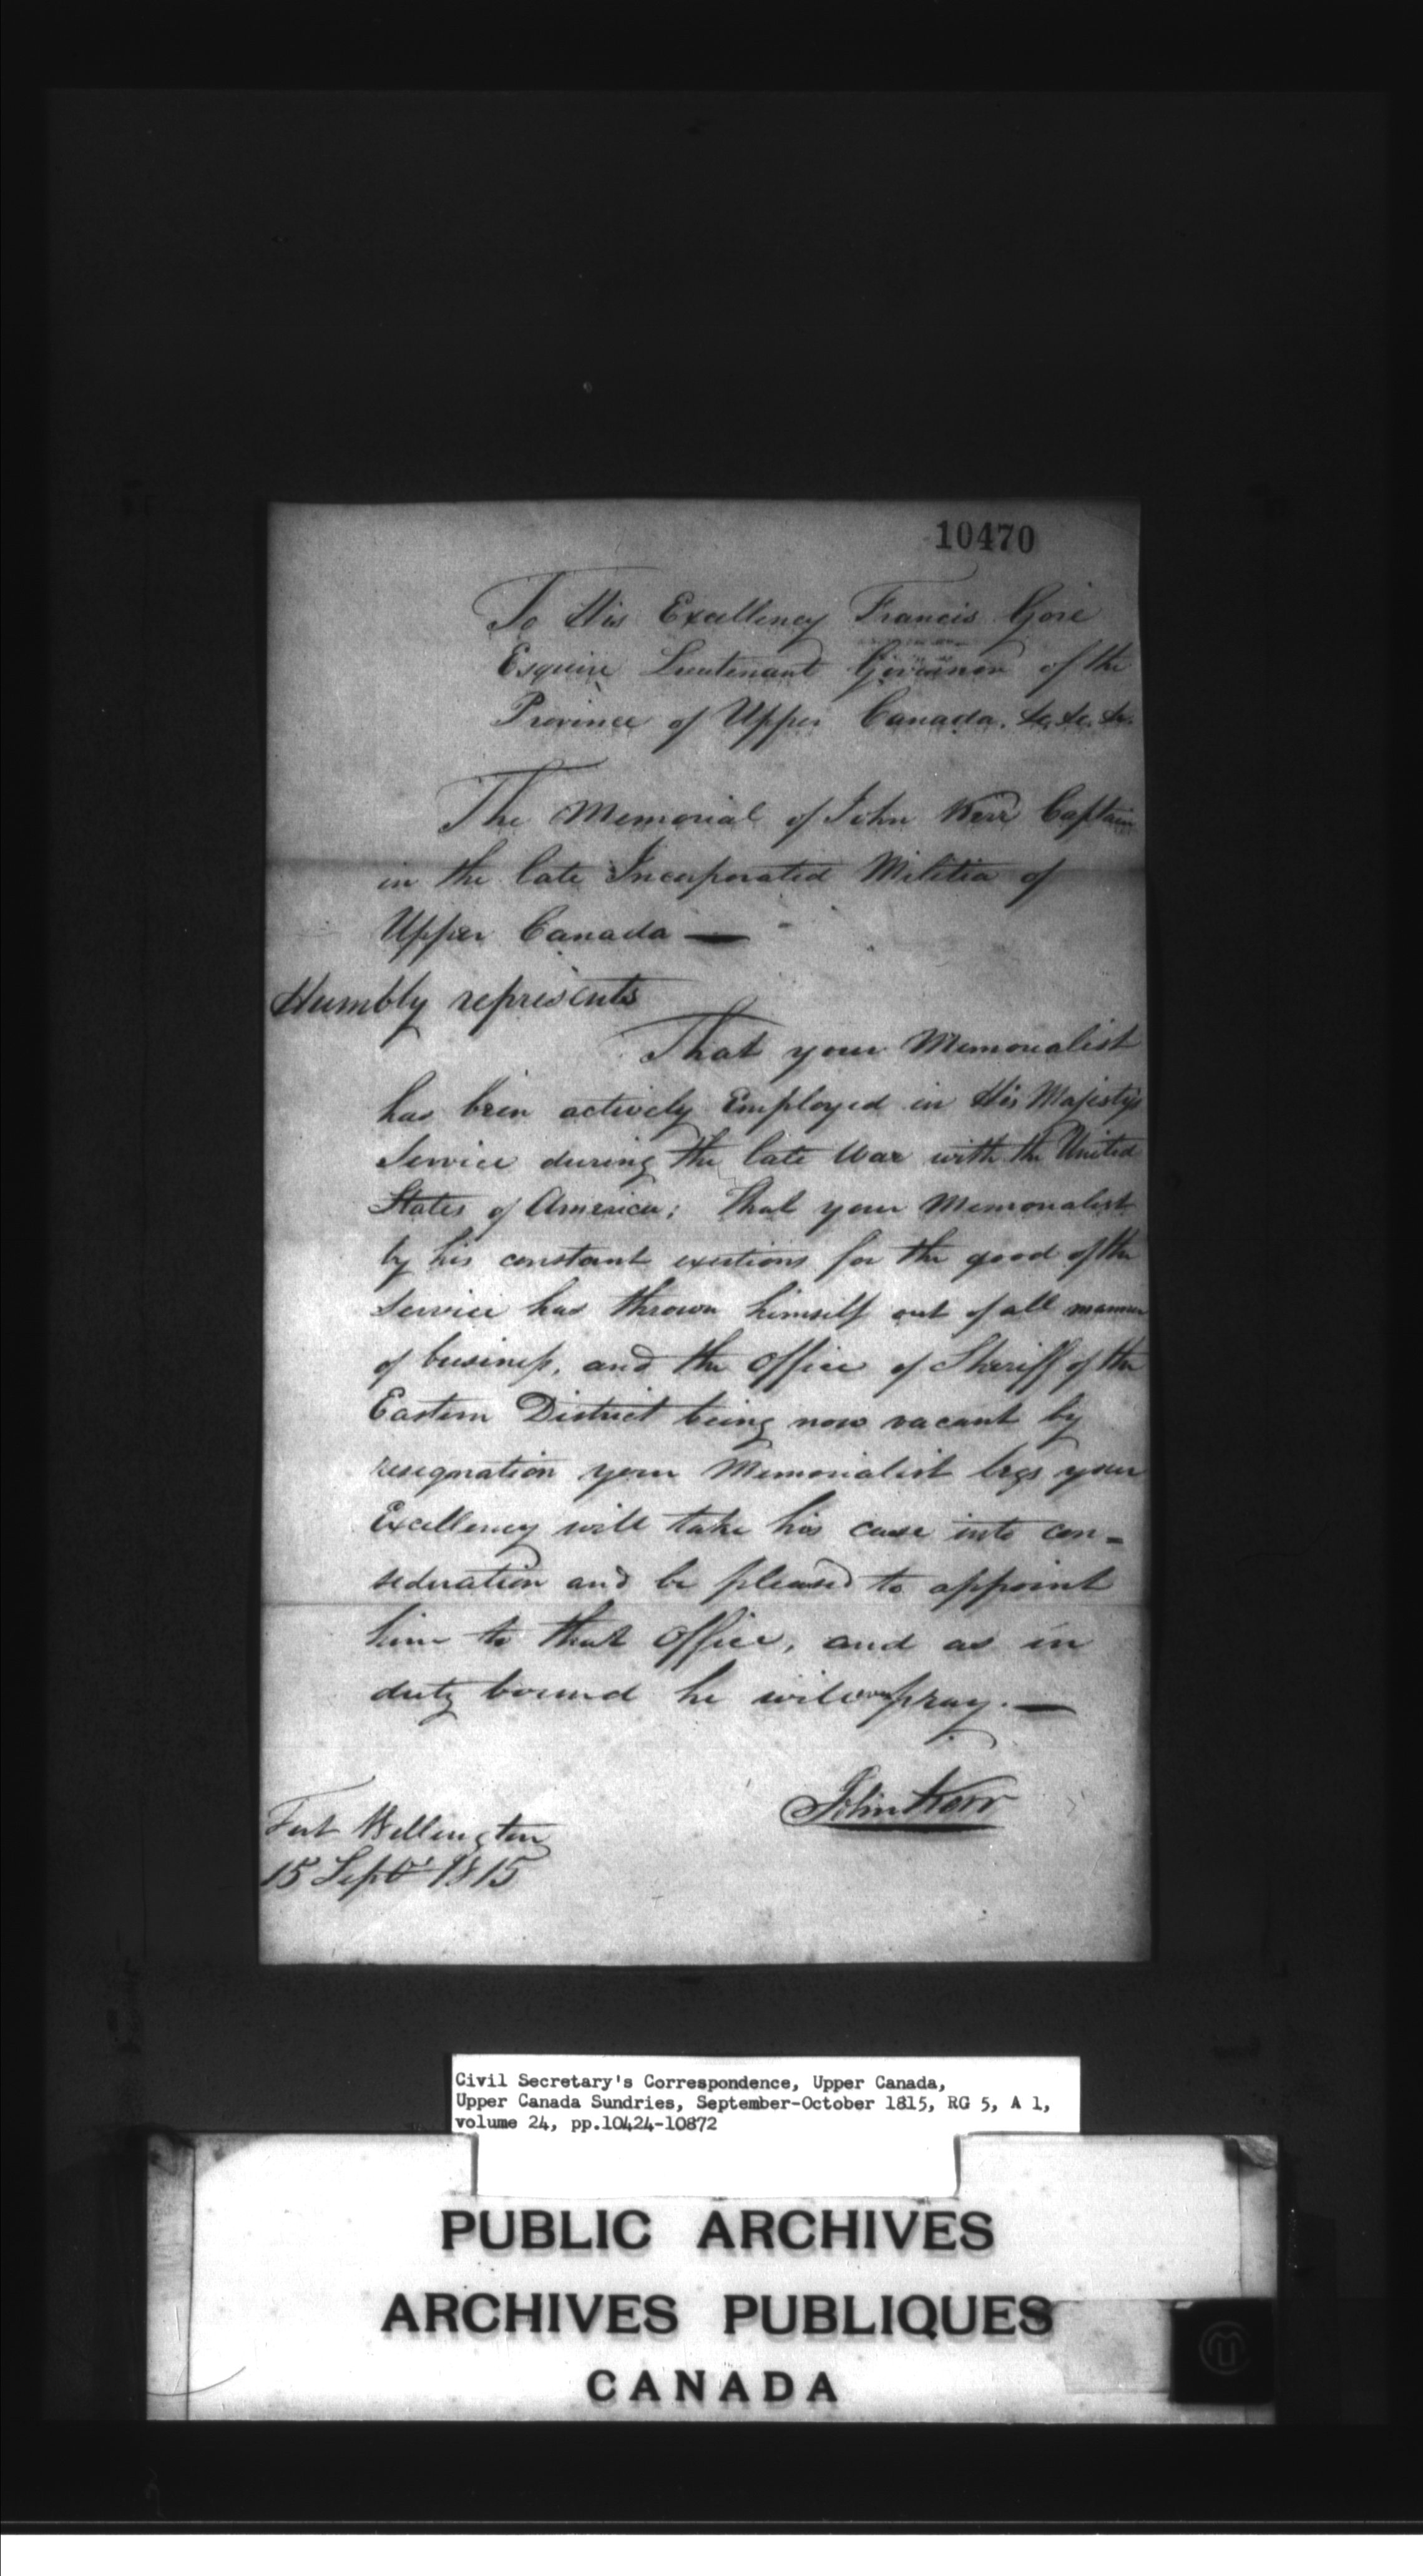 10470
To His Excellency Francis Gore
Esquire Lieutenant Governor of the
Province of Upper Canada. &c. &c. &c.
The Memorial of John Kerr Captain
in the late Incorporated Militia of
Upper Canada —
Humbly represents
That your Memorialist
has been actively Employed in His Majestys
Service during the late War with the United
States of America; That your Memorialist
by his constant exertions for the good of the
Service has thrown himself out of all manner
of business, and the Office of Sheriff of the
Eastern District being now vacant by
resignation your Memorialist begs your
Excellency will take his case into con=
sideration and be pleased to appoint
him to that Office, and as in
duty bound he will ever pray. —
John Kerr
Fort Wellington
15 Septr 1815
Civil Secretary's Correspondence, Upper Canada,
Upper Canada Sundries, September-October 1815, RG 5, A 1,
volume 24, pp.10424-10872
PUBLIC ARCHIVES
ARCHIVES PUBLIQUES
CANADA